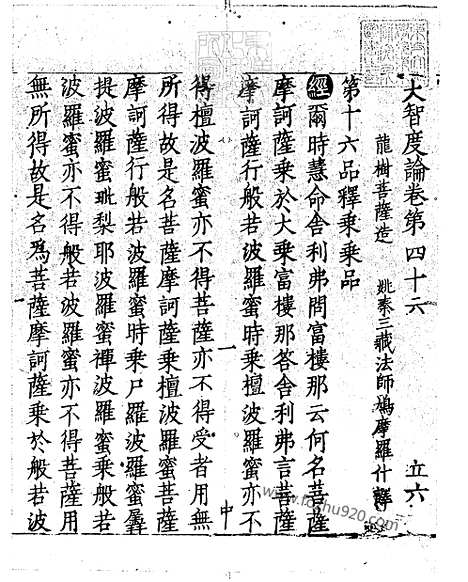 大智度論卷第四十六 立六
龍樹菩薩造 姚秦三藏法師鳩摩羅什譯
第十六品釋乘乘品
經爾時慧命舍利弗問富樓那云何名菩薩
摩訶薩乘於大乘富樓那答舍利弗言菩薩
摩訶薩行般若波羅蜜時乘檀波羅蜜亦不
得檀波羅蜜亦不得菩薩亦不得受者用無
所得故是名菩薩摩訶薩乘檀波羅蜜菩薩
摩訶薩行般若波羅蜜時乘尸羅波羅蜜羼
提波羅蜜毗梨耶波羅蜜禪波羅蜜乘般若
波羅蜜亦不得般若波羅蜜亦不得菩薩用
無所得故是名為菩薩摩訶薩乘於般若波
一
中